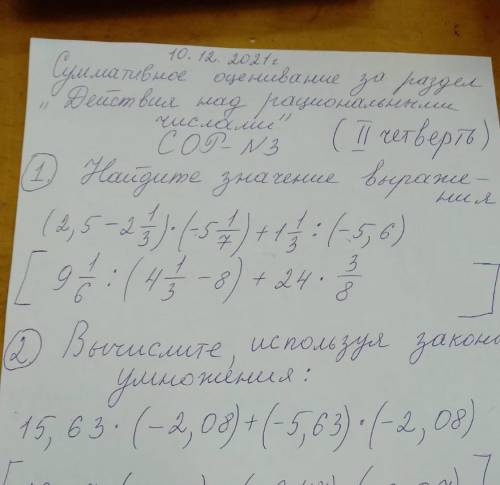 10. 12. 2021г
Суммативное оценивание за раздел
"Действия над рациональными
числами"
СОР-N3 (II четверть)
① Найдите значение выраже-
ния
(2,5 - 2 1/3) · (-5 1/7) + 1 1/3 : (-5,6)
[ 9 1/6 : (4 1/3 - 8) + 24 · 3/8 ]
② Вычислите, используя законы
умножения:
15,63 · (-2,08) + (-5,63) · (-2,08)